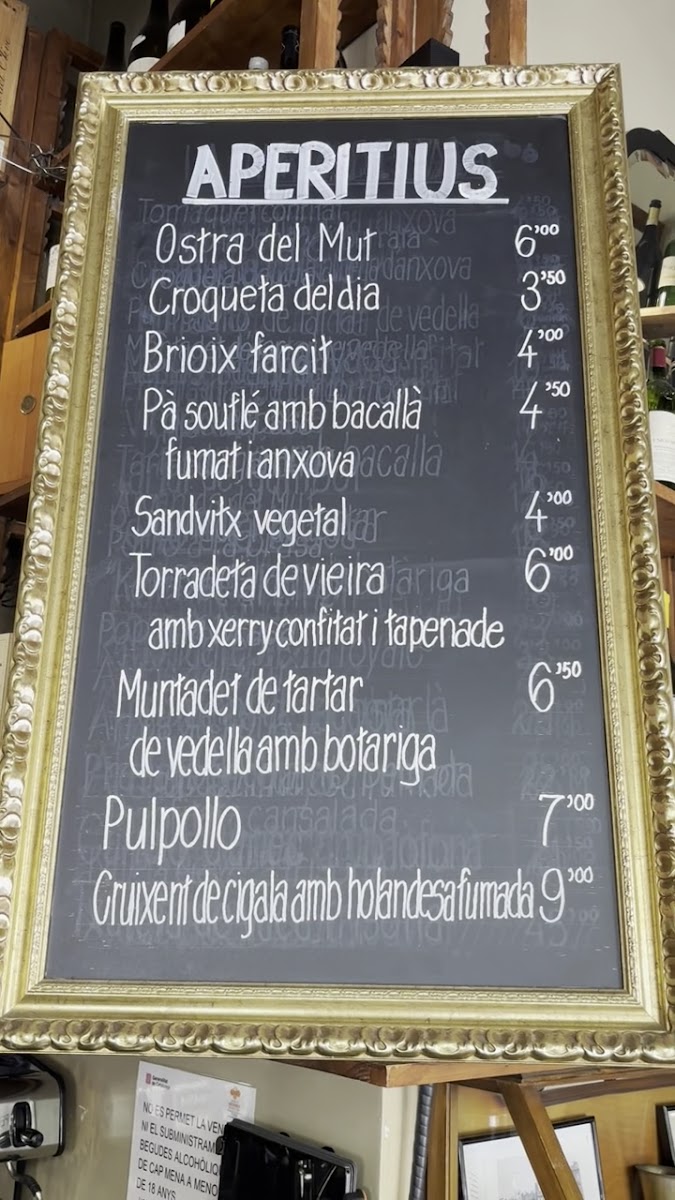 APERITIUS
Ostra del Mut 6'00
Croqueta del dia 3'50
Brioix farcit 4'00
Pà souflé amb bacallà 4'50
fumat i anxova
Sandvitx vegetal 4'00
Torradeta de vieira 6'00
amb xerry confitat i tapenade
Muntadet de tartar 6'50
de vedella amb botariga
Pulpollo 7'00
Cruixent de cigala amb holandesa fumada 9'00
NO ES PERMET LA
NI EL SUBMINISTRAM
BEGUDES ALCOHÒLIQ
DE CAP MENA A MENO
DE 18 ANYS